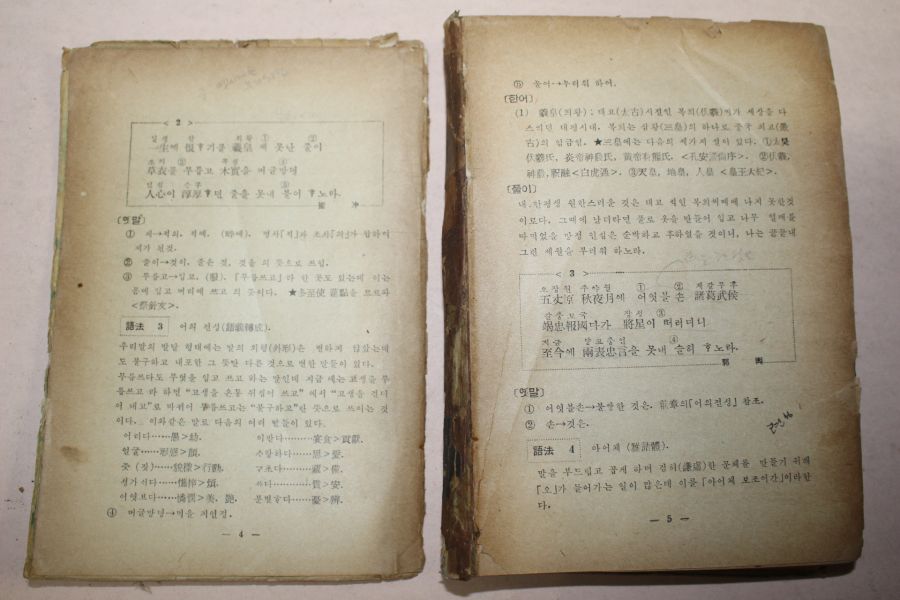 < 2 >
일생 한 희황 ① ②
一生에 恨ᄒᆞ기를 羲皇 쩨 못난 줄이
초의 ③ 목실 ④
草衣를 무릅고 木實을 머글망뎡
인심 순후 ⑤
人心이 淳厚ᄒᆞ던 줄을 못내 불어 ᄒᆞ노라.
[옛말]
① 쩨→적의, 적에, (時에), 명사「적」과 조사「의」가 합하여
져가 된것.
② 줄이→것이, 줄은 것, 것을 의 뜻으로 쓰임.
③ 무릅고→입고, (服), 「무릅쓰고」라 한 곳도 있는데 이는
몸에 입고 머리에 쓰고 의 뜻이다.
語法 3 어의 전성(語義轉成).
우리말의 발달 형태에는 말의 외형(外形)은 변하지 않았는데
도 불구하고 내포한 그 뜻만 다른 것으로 변한 말들이 있다.
무릅쓰다도 무엇을 입고 쓰고 하는 말인데 지금 에는 고생을 무
릅쓰고 라 하면 "고생을 온통 뒤집어 쓰고" 에서 "고생을 견디
어 내고"로 바뀌어 무릅쓰고는 "불구하고"란 뜻으로 쓰이는 것
이다. 이와같은 말로 다음의 여러 말들이 있다.
어리다……愚>幼. 이받다………宴食>貢獻.
얼굴……形姿>顔. 사랑하다……思>愛.
즛 (짓)……貌樣>行動. 구초다………藏>備.
성가시다……憔悴>煩. 쓰다………貴>安.
어엿브다……憐憫>美, 艶. 분별ᄒᆞ다……憂>辨.
④ 머글망뎡→먹을 지언정.
— 4 —
⑤ 불어→부러워 하여.
[한어]
(1) 羲皇(희황) ; 태고(太古)시절인 복희(伏羲)씨가 세상을 다
스리던 태평시대, 복희는 삼황(三皇)의 하나로 중국 최고(最
古)의 임금임. ★三皇에는 다음의 세가지 설이 있다. ①太昊
伏羲氏, 炎帝神農氏, 黃帝有熊氏. <孔安國尙書序>. ②伏羲,
神農, 祝融<白虎通>. ③天皇, 地皇, 人皇 <皇王大紀>.
[풀이]
내 한평생 원한스러운 것은 태고 적인 복희씨때에 나지 못한것
이로다. 그때에 났더라면 풀로 옷을 만들어 입고 나무 열매를
따먹었을 망정 인심은 순박하고 후하였을 것이니, 나는 끝끝내
그런 세월을 부러워 하노라.
< 3 >
오장원 추야월 ① ② 제갈무후
五丈原 秋夜月에 어엿불손 諸葛武侯
갈충보국 장성 ③
竭忠報國다가 將星이 떠러디니
지금 량표충언 ④
至今에 兩表忠言을 못내 슬허 ᄒᆞ노라.
郭輿
[옛말]
① 어엿불손→불쌍한 것은. 前章의「어의전성」참조.
② 손→것은.
語法 4 아어체 (雅語體).
말을 부드럽고 곱게 하며 겸허(謙虛)한 문체를 만들기 위해
「오」가 들어가는 일이 많은데 이를 「아어체 보조어간」이라한
다.
— 5 —